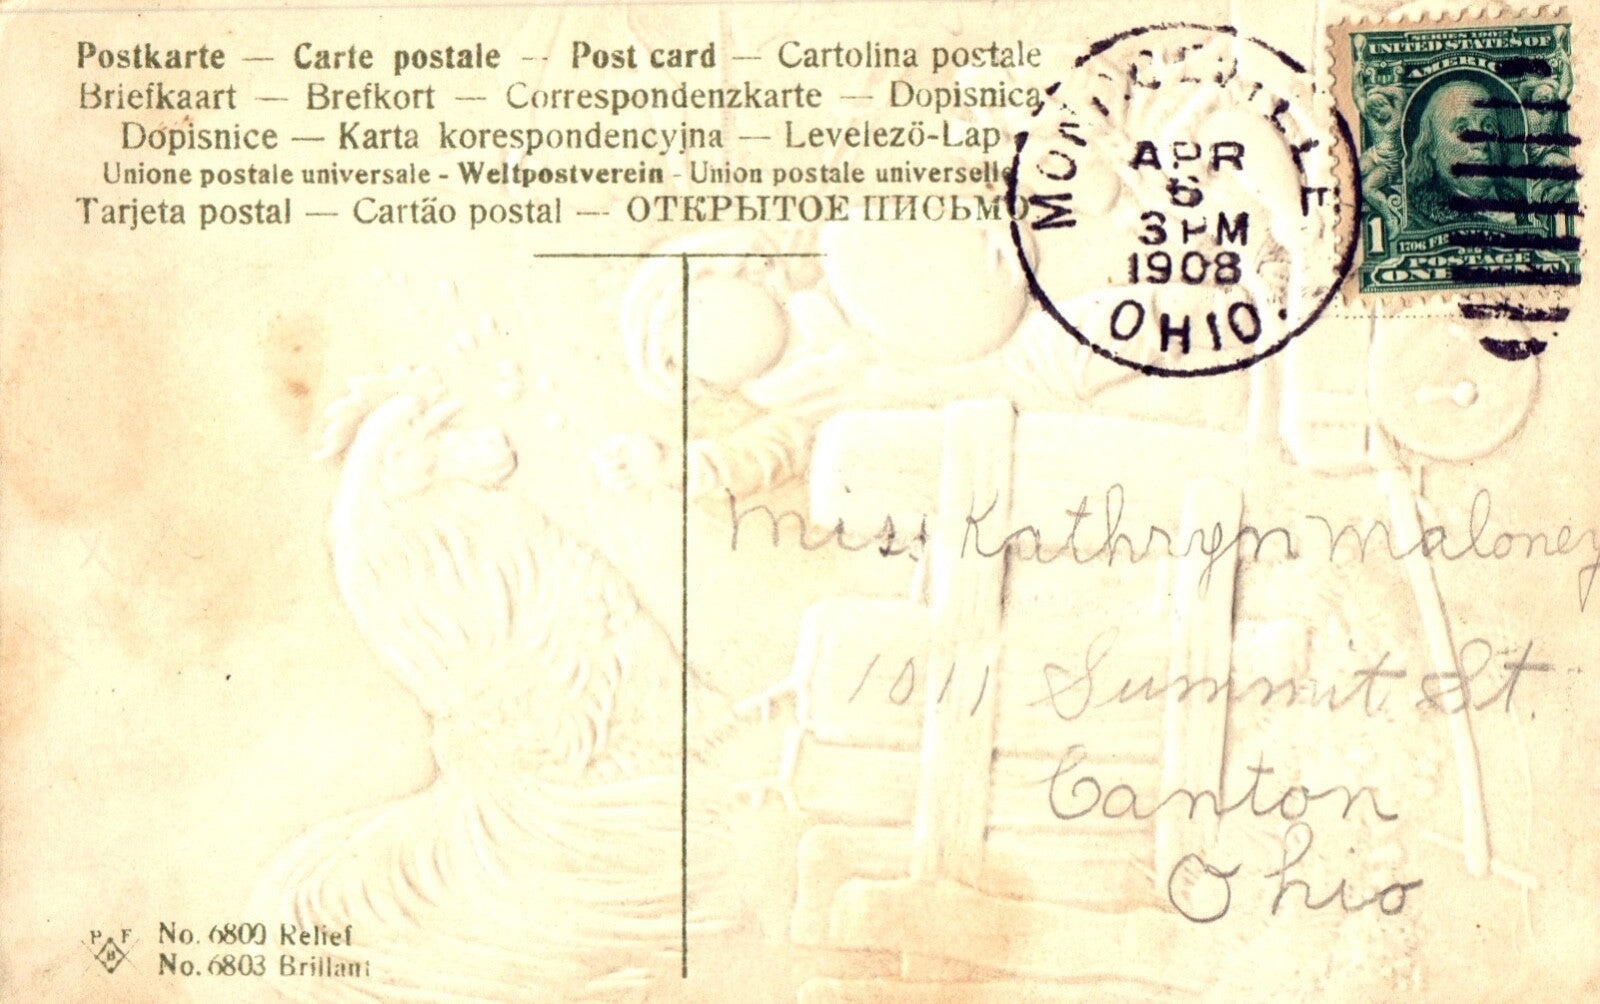 Postkarte — Carte postale -- Post card — Cartolina postale
Briefkaart — Brefkort — Correspondenzkarte — Dopisnica
Dopisnice — Karta korespondencyjna — Levelező-Lap
Unione postale universale - Weltpostverein - Union postale universelle
Tarjeta postal — Cartão postal — ОТКРЫТОЕ ПИСЬМО
MONROEVILLE
APR
3 PM
1908
OHIO.
SERIES 1902
UNITED STATES OF
AMERICA
1
POSTAGE
ONE CENT
Miss Kathryn Maloney
1011 Summit St.
Canton
Ohio
P F
B
No. 6800 Relief
No. 6803 Brillant